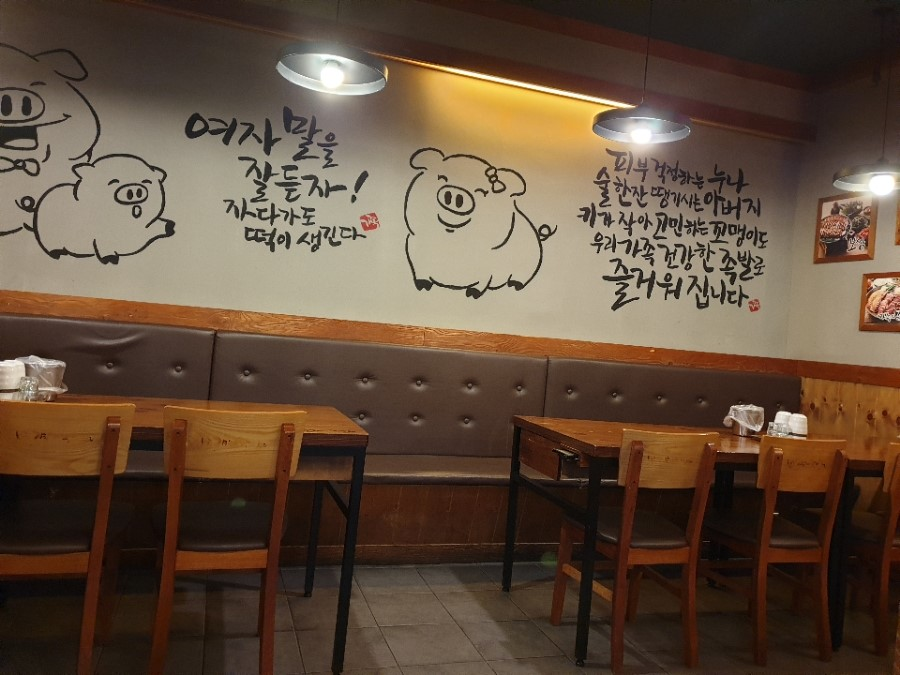 여자 말을
잘 듣자!
자다가도
떡이 생긴다
피부 걱정하는 누나
술 한잔 땡기시는 아버지
키가 작아 고민하는 꼬맹이도
우리가족 건강한 족발로
즐거워 집니다